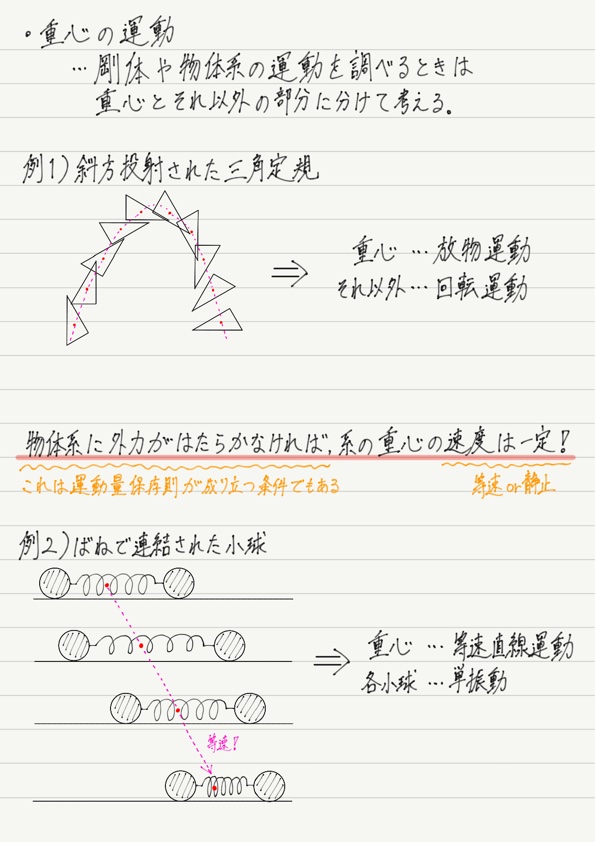 ・重心の運動
…剛体や物体系の運動を調べるときは
重心とそれ以外の部分に分けて考える。
例1)斜方投射された三角定規
⇒
重心 … 放物運動
それ以外…回転運動
物体系に外力がはたらかなければ,系の重心の速度は一定!
これは運動量保存則が成り立つ条件でもある
等速or静止
例2)ばねで連結された小球
⇒
重心 … 等速直線運動
各小球 … 単振動
等速!